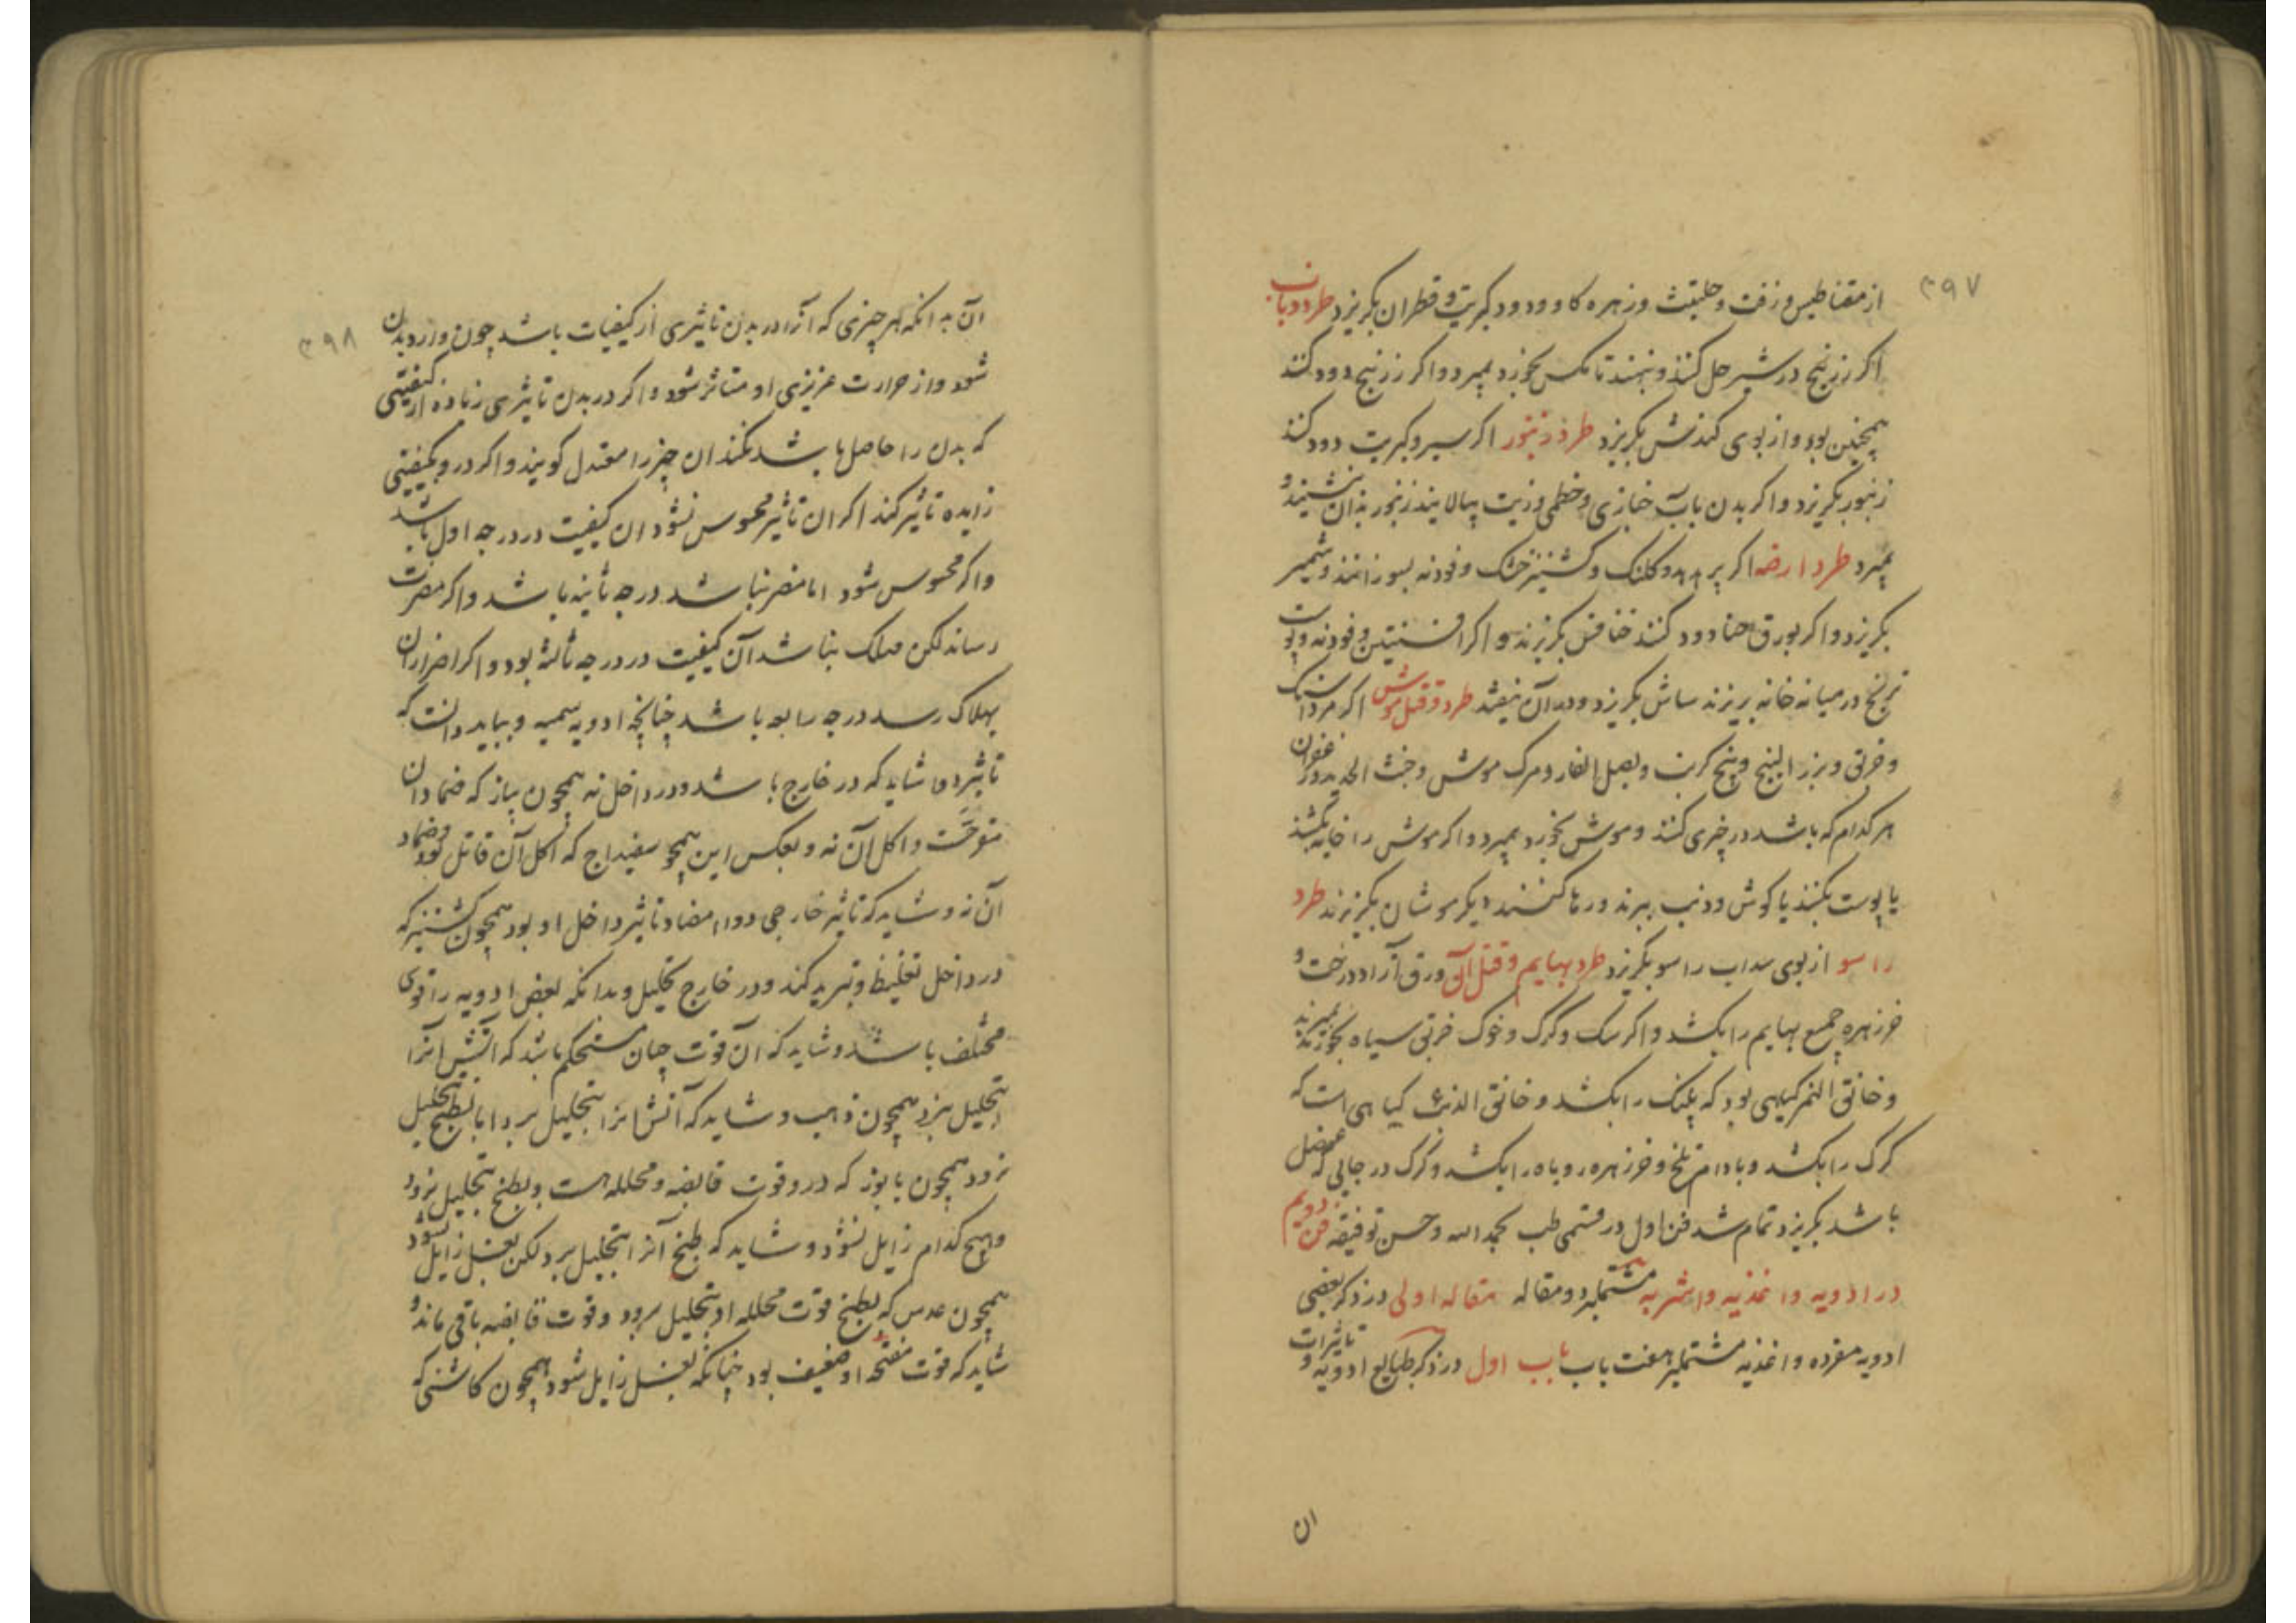 ۳۹۷
از مقناطیس و زفت و حلتیت و زهره کاو و دود کبریت و قطران بکریزد طرد ذباب
اکر زرنیخ در شیر حل کنند و بنهند تا مکس بخورد بمیرد و اکر زرنیخ دود کنند
همچنین بود و از بوی کندش بکریزد طرد زنبور اکر سیر و کبریت دود کنند
زنبور بکریزد و اکر بدن بآب خبازی و خطمی و زیت بیالایند زنبور بدان ننشیند و
بمیرد طرد ارضه اکر پر هدهد و کلنک و کشنیز خشک و فودنه بسوزانند
بکریزد و اکر بورق جنا دود کنند خنافس بکریزند و اکر افسنتین و فودنه و پوست
ترنج در میانه خانه بریزند ساش بکریزد و در آن نیفتد طرد و قتل موش اکر مرداسنک
و خربق و بزر البنج و بیخ کرنب و بصل الفار و مرک موش و خبث الحدید و زعفران
هر کدام که باشد در چیزی کنند و موش بخورد بمیرد و اکر موش را خایه بکشند
یا پوست بکنند یا کوش و ذنب ببرند و رها کنند دیکر موشان بکریزند طرد
راسو از بوی سداب راسو بکریزد طرد بهایم و قتل آن ورق آزاد درخت و
خرزهره جمیع بهایم را بکشد و اکر سک و کرک و خوک خربق سیاه بخورند بمیرند
و خانق النمر کیاهی بود که پلنک را بکشد و خانق الذئب کیاهی است که
کرک را بکشد و بادام تلخ و خرزهره روباه را بکشد و کرک در جایی که عنصل
باشد بکریزد تمام شد فن اول در قسمی طب بحمد الله و حسن توفیقه فن دویم
در ادویه و اغذیه و اشربه مشتمل بر دو مقاله مقاله اولی در ذکر بعضی
ادویه مفرده و اغذیه مشتمل بر هفت باب باب اول در ذکر طبایع ادویه و تاثیرات
ان
۳۹۸
آن بدانکه هر چیزی که آنرا در بدن تاثیری از کیفیات باشد چون وارد بدن
شود و از حرارت غریزی او متاثر شود و اکر در بدن تاثیری زیاده از کیفیتی
که بدن را حاصل باشد نکند ان چیز را معتدل کویند و اکر در و بکیفیتی
زایده تاثیر کند اکر ان تاثیر محسوس نشود ان کیفیت در درجه اول باشد
و اکر محسوس شود اما مضر نباشد درجه ثانیه باشد و اکر مضرت
رساند لکن مهلک نباشد آن کیفیت در درجه ثالثه بود و اکر اضرار ان
بهلاک رسد درجه رابعه باشد چنانچه ادویه سمیه و بباید دانست که
تاثیر دوا شاید که در خارج باشد و در داخل نه همچون پیاز که ضماد ان
مقرح است و اکل آن نه و بعکس این همچو سفیداج که اکل آن قاتل بود و ضماد
آن نه و شاید که تاثیر خارجی دوا مضاد تاثیر داخل او بود همچون کشنیز که
در داخل تغلیظ و تبرید کند و در خارج تحلیل و بدانکه بعض ادویه را قوی
مختلف باشد و شاید که آن قوت چنان مستحکم باشد که آتش آنرا
بتحلیل نبرد همچون ذهب و شاید که آتش آنرا بتحلیل برد اما بطبخ بتحلیل
نرود همچون بابونه که در و قوت قابضه و محلله هست و بطبخ بتحلیل نرود
و هیچ کدام زایل نشود و شاید که طبخ آنرا بتحلیل برد و لکن بغسل زایل نشود
همچون عدس که بطبخ قوت محلله او بتحلیل برود و قوت قابضه باقی ماند و
شاید که قوت مفتحه او ضعیف بود چنانکه بغسل زایل شود همچون کاسنی که